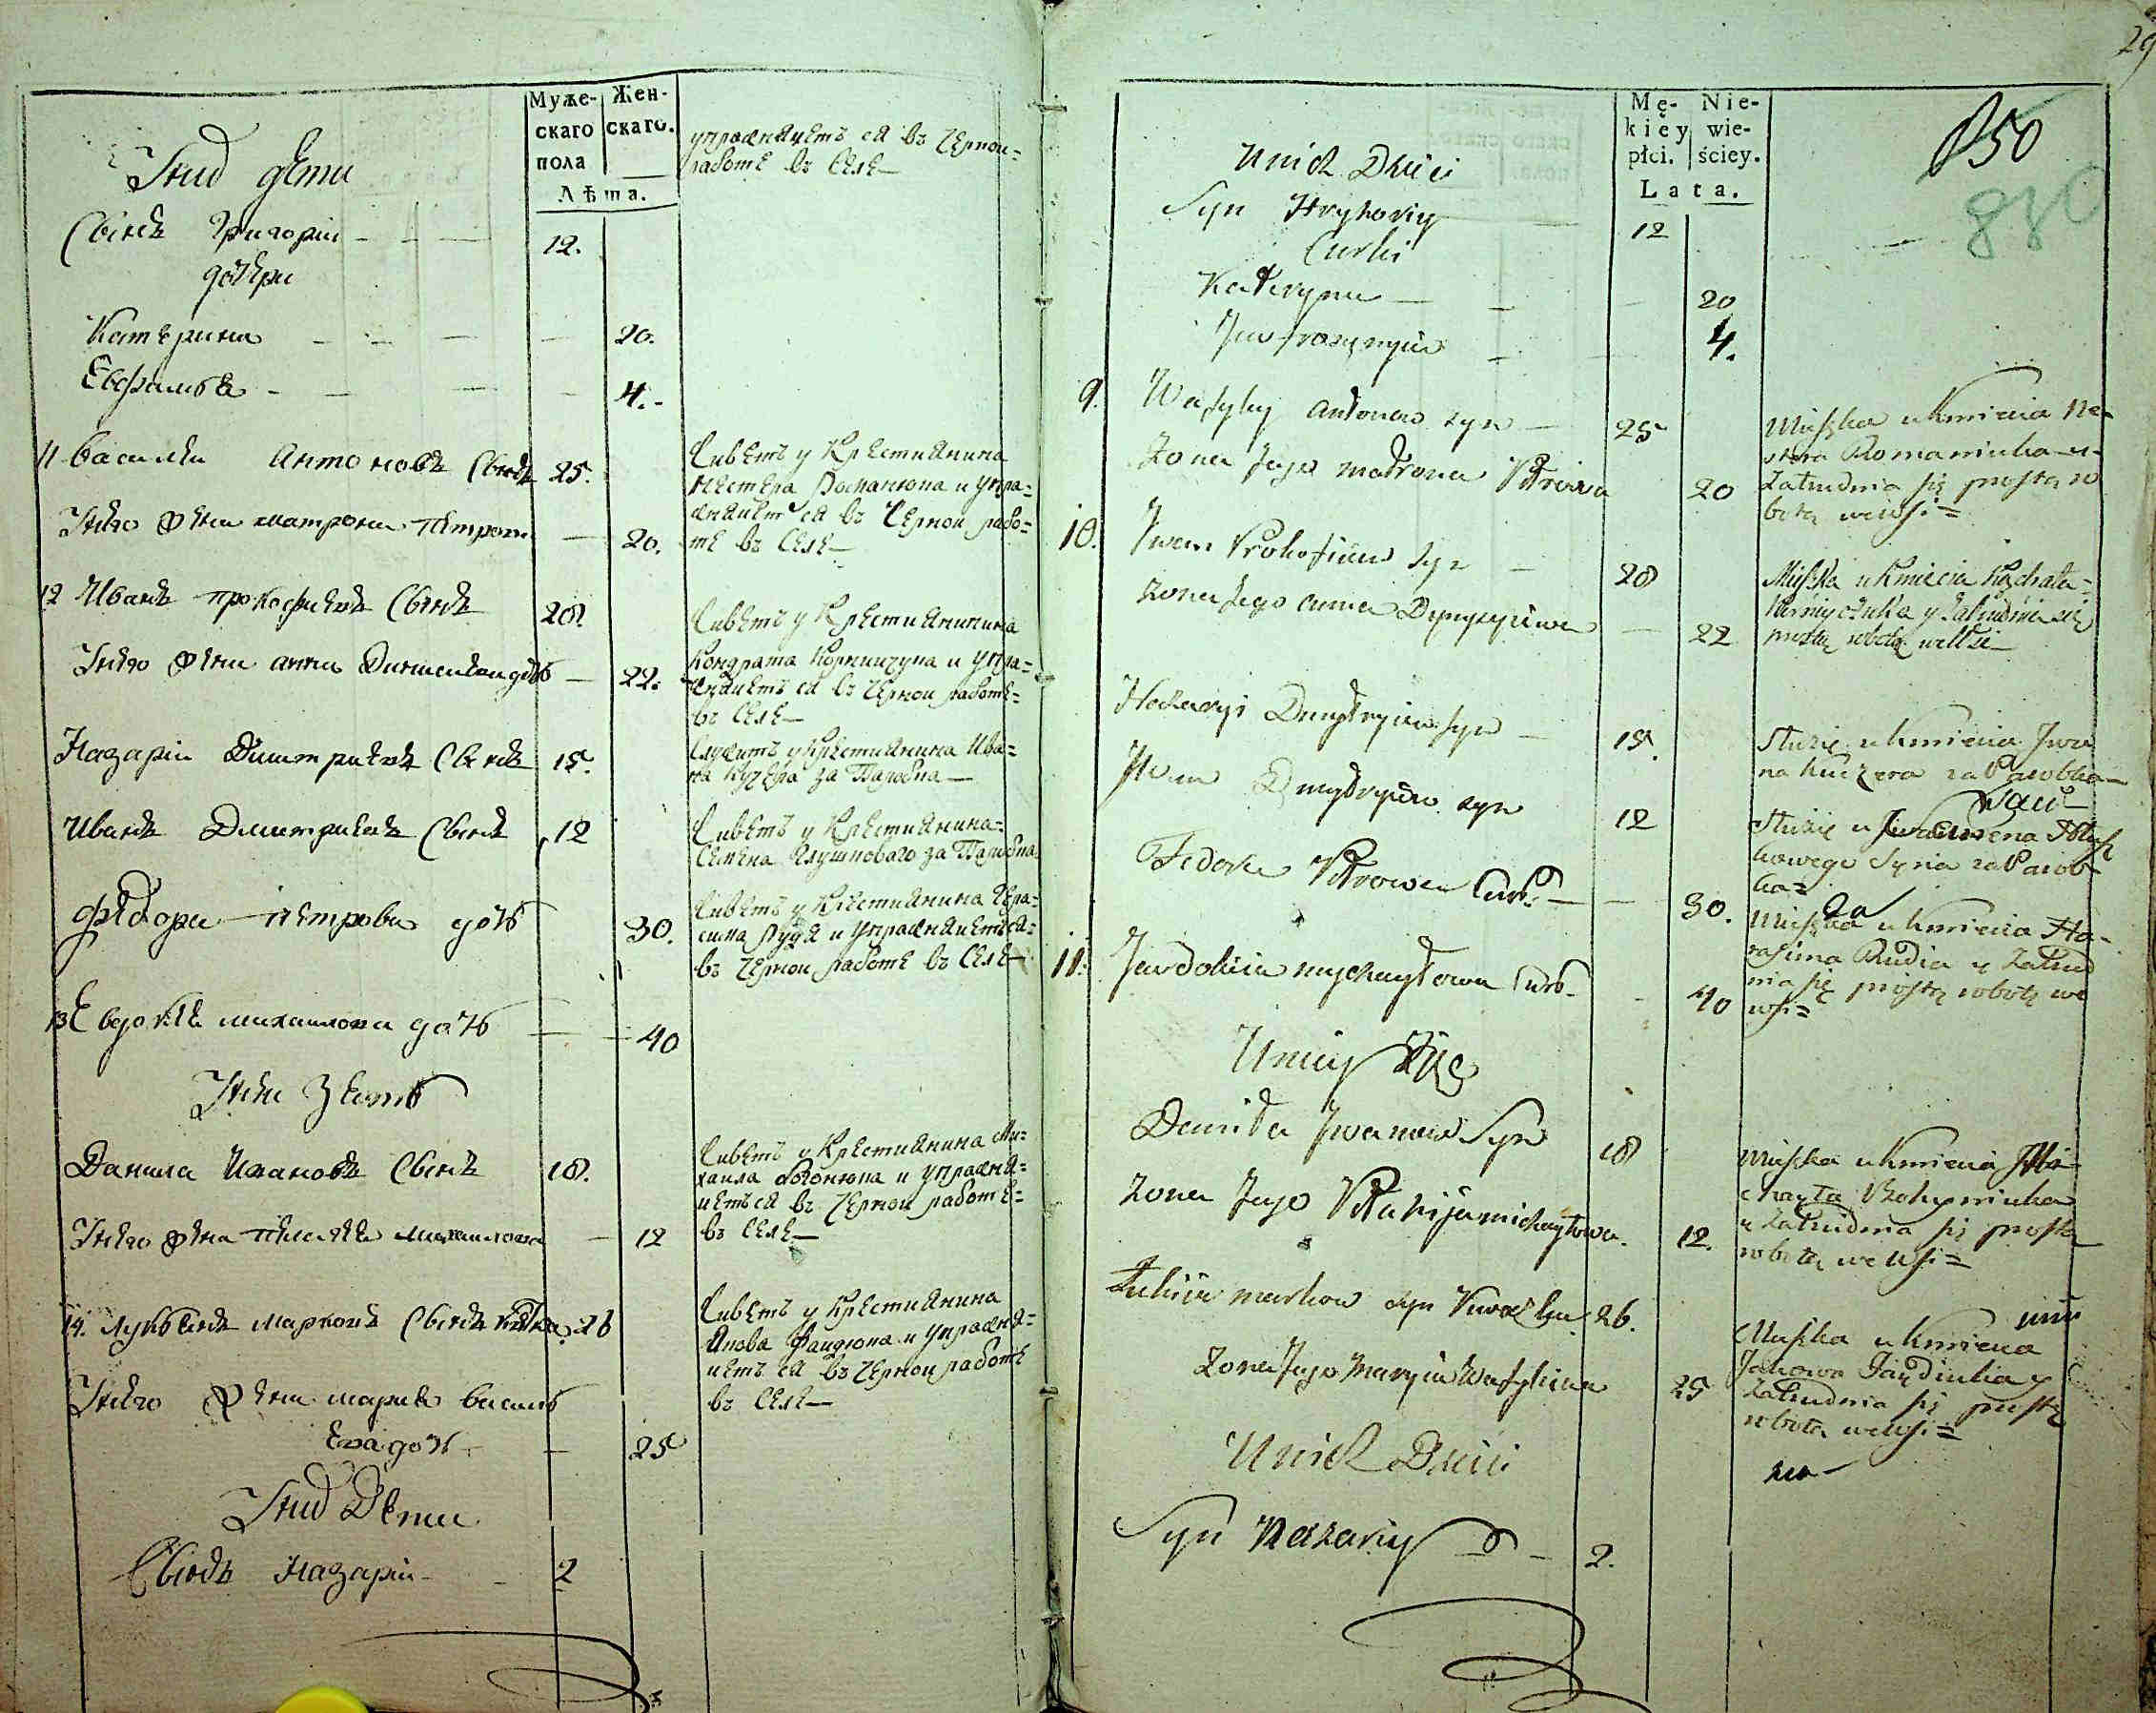 Муже-
скаго
пола
Жен-
скаго.
Лѣта.
упражняетъ ся въ Черной=
работѣ въ Селѣ—
Унихъ дѣти
Сынъ Григорій — — — 12.
дочери
Катерина — — — — 20.
4.-
11 Василій Антоновъ Сынъ 25.
Живетъ у Крестиянина
Нестера Романюка и упра=
жняетъ ся въ Черной рабо=
тѣ въ Селѣ—
Унего жена матрона петрова — 20.
12 Иванъ прокофиевъ Сынъ 28.
Живетъ у Крестиянина
Кондрата Корнийчука и упра=
жняетъ ся въ Черной работѣ=
въ Селѣ—
Унего жена анна — 22.
Назарій Дмитриевъ Сынъ 15.
Служитъ у Крестиянина Ива=
на Кучера за Паробка—
Иванъ Дмитриевъ Сынъ 12
Живетъ у Крестиянина=
Семена Глушковаго за Паробка
петрова дочь 30.
Живетъ у Крестиянина Гера=
сима Рудя и упражняетъ ся=
въ Черной работѣ въ Селѣ—
13 Евдокия михаилова дочь — 40
Унеи Зять
Данила Ивановъ Сынъ 18.
Живетъ у Крестиянина Ми=
хаила и упражня=
етъ ся въ Черной работѣ=
въ Селѣ—
Унего жена михаилова — 12
14. Лукьянъ марковъ Сынъ 26
Живетъ у Крестиянина
Якова и упражня=
етъ ся въ Черной работѣ
въ Селѣ—
Унего жена мария василь
ева дочь — — 25
Унихъ Дѣти
Сынъ Назарій — — 2
29
850
880
Mę-
kiéy
płci.
Nie-
wie-
ściey.
Lata.
Unich Dzieci
Syn Hryhoriy — 12
Curki
Kateryna — — — 20
4.
9. Wasyly Antonow syn — 25
Mieszka u kmiecia Ne-
stera Romaniuka u-
Zatrudnia się prostą ro
botą we wsi=
Zona Jego matrona Petrowa 20
10. Jwan Prokofiiew syn — 28
Mieszka u Kmiecia Kondrata=
Korniyczuka y Zatrudnia się
prostą robotą we Wsi—
Zona Jego anna — 22
Nazaryi Dmytryiew syn — 15.
Służy u kmiecia Jwa
na Kuczera za Parobka—
Jwan Dmytryiew syn 12
Służy u Semena Hłusz
kowego Syna za Parob-
ka=
Fedora Petrowa Curk. — — 30.
Mieszka u kmiecia Ha-
rasima Rudia y Zatrud
nia się prostą robotą we
wsi=
11. Jewdokiia mychayłowa Curk. — 40
Uniey Zięć
Daniła Jwanow Syn 18
Mieszka u Kmiecia Mi-
chayła
y Zatrudnia się prostą
robotą we wsi=
Zona Jego michayłowa. 12.
markow syn 26.
Mieszka u kmiecia
Jakowa y
Zatrudnia się prostą
robotą we wsi=
Zona Jego Maryia Wasyliewa 25
Unich Dzieci
Syn Nazariy — — 2.